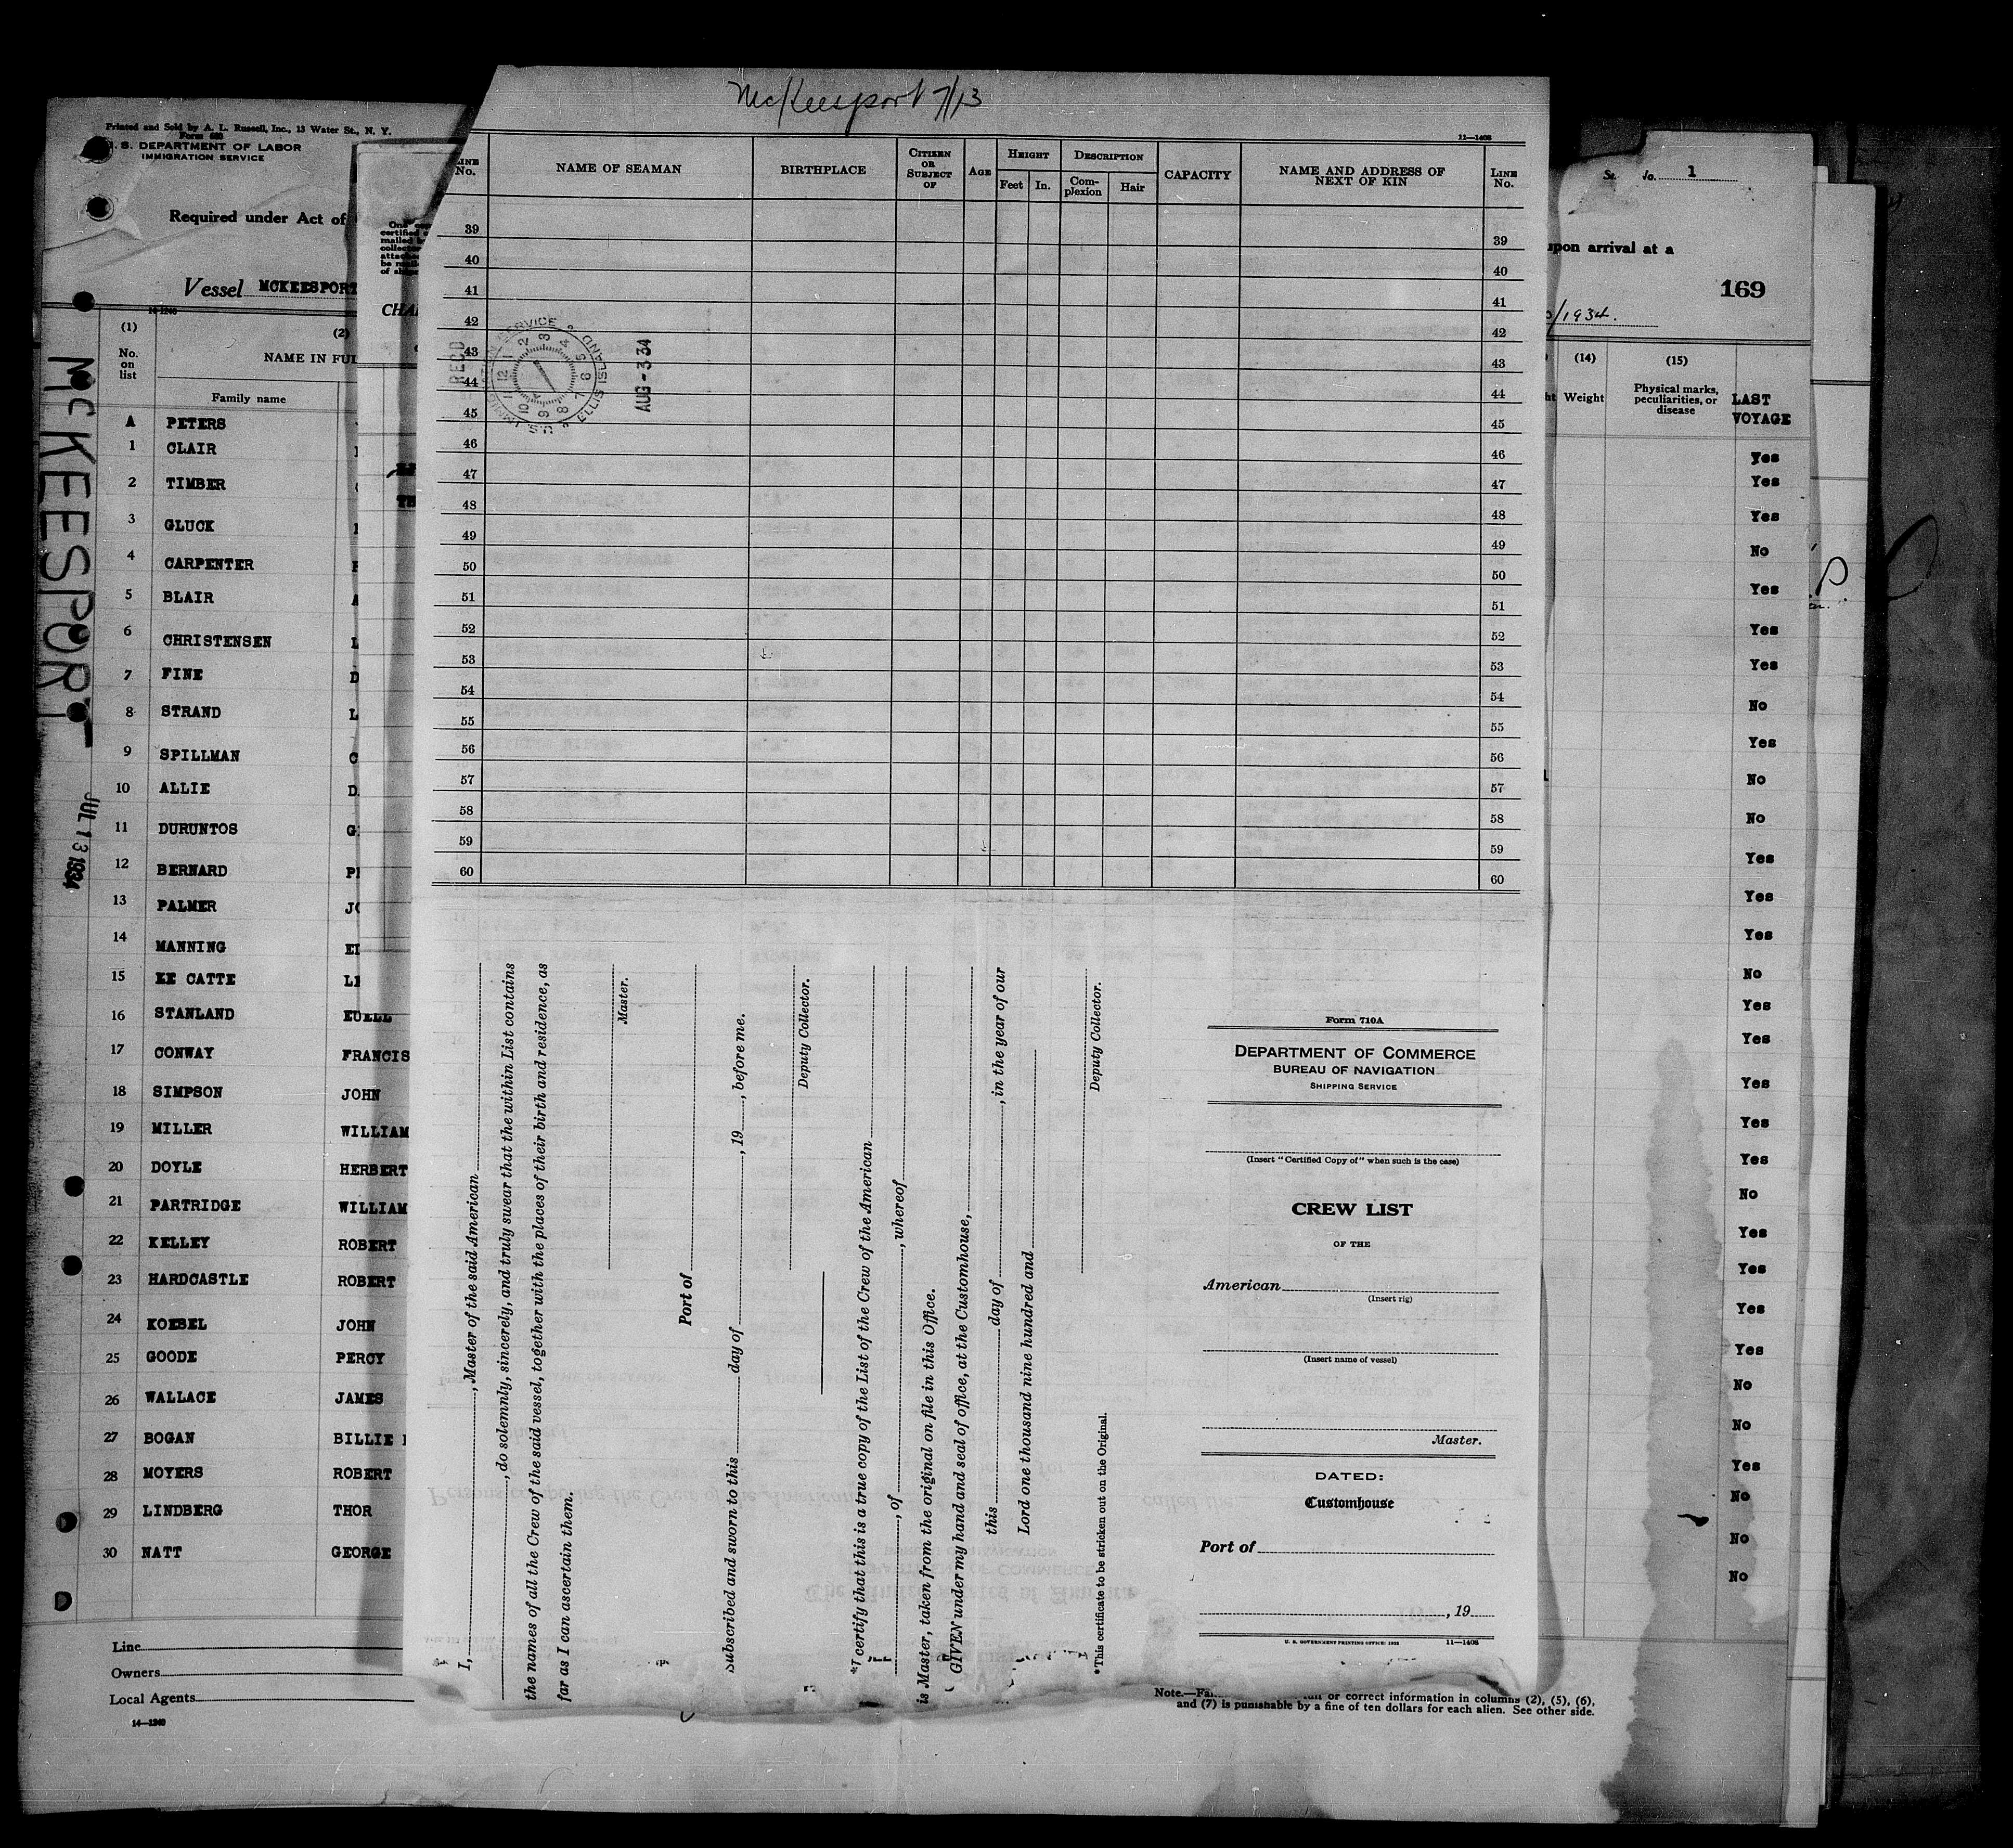 McKeesport 7/13
Printed and Sold by A. L. Russell, Inc., 13 Water St., N. Y.
Form 680
U. S. DEPARTMENT OF LABOR
IMMIGRATION SERVICE
Required under Act of
Vessel MCKEESPORT
(1) (2)
No. on list
NAME IN FUL
Family name
A PETERS
1 CLAIR
2 TIMBER
3 GLUCK
4 CARPENTER
5 BLAIR
6 CHRISTENSEN L
7 FINE D
8 STRAND L
9 SPILLMAN
10 ALLIE D
11 DURUNTOS G
12 BERNARD
13 PALMER
14 MANNING
15 CATTE
16 STANLAND EUELL
17 CONWAY FRANCIS
18 SIMPSON JOHN
19 MILLER WILLIAM
20 DOYLE HERBERT
21 PARTRIDGE WILLIAM
22 KELLEY ROBERT
23 HARDCASTLE ROBERT
24 KOESEL JOHN
25 GOODE PERCY
26 WALLACE JAMES
27 BOGAN BILLIE
28 MOYERS ROBERT
29 LINDBERG THOR
30 NATT GEORGE
Line
Owners
Local Agents
14—1240
McKEESPORT
JUL 13 1934
One
certified
mailed
be mail
of
CHA
11—1408
LINE No.
NAME OF SEAMAN
BIRTHPLACE
CITIZEN OR SUBJECT OF
AGE
HEIGHT
Feet In.
DESCRIPTION
Complexion Hair
CAPACITY
NAME AND ADDRESS OF NEXT OF KIN
LINE No.
39 39
40 40
41 41
42 42
43 43
44 44
45 45
46 46
47 47
48 48
49 49
50 50
51 51
52 52
53 53
54 54
55 55
56 56
57 57
58 58
59 59
60 60
REC'D
U.S. IMMIGRATION SERVICE ELLIS ISLAND
AUG - 3 34
I, , Master of the said American
, do solemnly, sincerely, and truly swear that the within List contains
the names of all the Crew of the said vessel, together with the places of their birth and residence, as
far as I can ascertain them.
Master.
Port of
Subscribed and sworn to this day of , 19 , before me.
Deputy Collector.
*I certify that this is a true copy of the List of the Crew of the American
, of , whereof
is Master, taken from the original on file in this Office.
GIVEN under my hand and seal of office, at the Customhouse,
this day of , in the year of our
Lord one thousand nine hundred and
Deputy Collector.
*This certificate to be stricken out on the Original.
Form 710A
DEPARTMENT OF COMMERCE
BUREAU OF NAVIGATION
SHIPPING SERVICE
(Insert "Certified Copy of" when such is the case)
CREW LIST
OF THE
American
(Insert rig)
(Insert name of vessel)
Master.
DATED:
Customhouse
Port of
, 19
U. S. GOVERNMENT PRINTING OFFICE: 11—1408
No. 1
upon arrival at a
169
/1934.
(14) (15)
Weight
Physical marks, peculiarities, or disease
LAST VOYAGE
Yes
Yes
Yes
No
Yes
Yes
Yes
No
Yes
No
No
Yes
Yes
Yes
No
Yes
Yes
Yes
Yes
Yes
No
Yes
Yes
Yes
Yes
No
No
Yes
No
No
No
Note.— or correct information in columns (2), (5), (6),
and (7) is punishable by a fine of ten dollars for each alien. See other side.